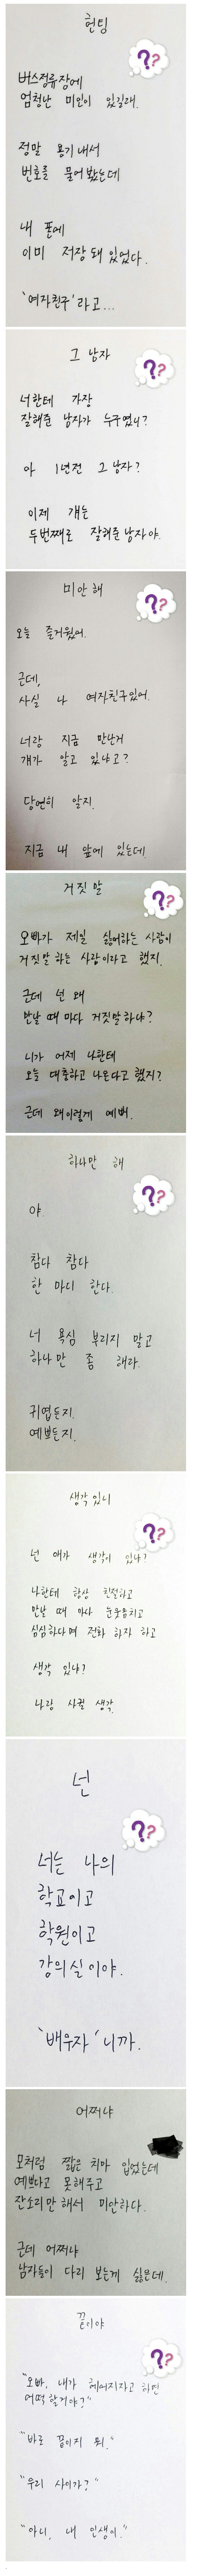 헌팅
??
버스정류장에
엄청난 미인이 있길래.
정말 용기내서
번호를 물어봤는데
내 폰에
이미 저장돼 있었다.
'여자친구'라고...
그 남자
??
너한테 가장
잘해준 남자가 누구였니?
아 1년전 그 남자?
이제 걔는
두번째로 잘해준 남자야.
미안해
??
오늘 즐거웠어.
근데,
사실 나 여자친구있어.
너랑 지금 만난거
걔가 알고 있냐고?
당연히 알지.
지금 내 앞에 있는데.
거짓말
??
오빠가 제일 싫어하는 사람이
거짓말 하는 사람이라고 했지.
근데 넌 왜
만날 때 마다 거짓말하냐?
니가 어제 나한테
오늘 대충하고 나온다고 했지?
근데 왜이렇게 예뻐.
하나만 해
??
야.
참다 참다
한 마디 한다.
너 욕심 부리지 말고
하나만 좀 해라.
귀엽든지.
예쁘든지.
생각있니
??
넌 애가 생각이 있냐?
나한테 항상 친절하고
만날 때 마다 눈웃음치고
심심하다며 전화 하자 하고
생각 있냐?
나랑 사귈 생각.
넌
??
너는 나의
학교이고
학원이고
강의실이야.
'배우자'니까.
어쩌냐
모처럼 짧은 치마 입었는데
예쁘다고 못해주고
잔소리만해서 미안하다.
근데 어쩌냐
남자들이 다리 보는게 싫은데.
끝이야
??
"오빠, 내가 헤어지자고 하면
어떡할거야?"
"바로 끝이지 뭐."
"우리 사이가?"
"아니, 내 인생이."